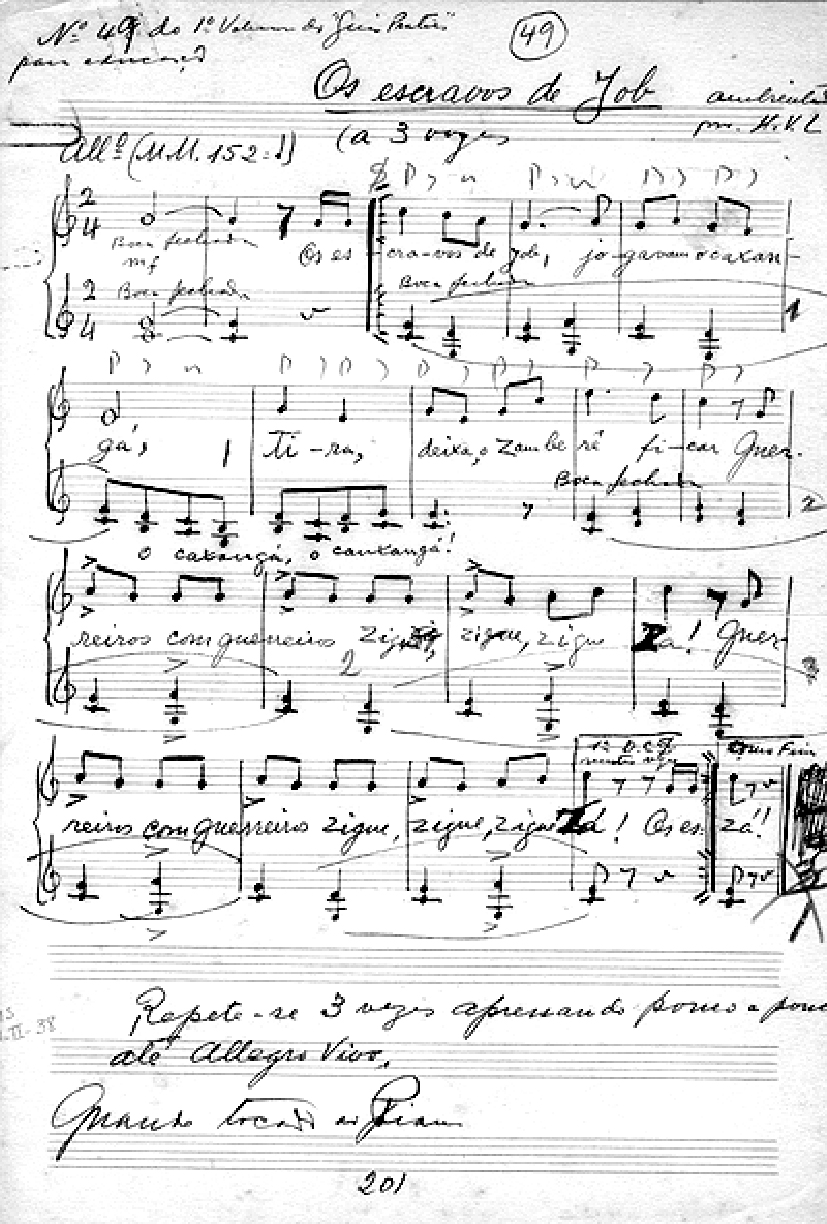 Nº 49 do 1º Volume do "Guia Prático"
para educação
49
Os escravos de Job
ambientado
por H.V.L
(a 3 vozes
All⁰ (M.M. 152=♩)
2 4
Boca fechada
mf
Os es-cra-vos de Job, jo-gavam o caxan-
2 4
Boca fechada
Boca fechada
1
gá, Ti-ra, deixa, o Zambe rê fi-car Guer-
Boca fechada
o caxangá, o caxangá!
2
reiros com guerreiros zigue, zigue, zigue Za! Guer-
2
3
1ª D.C.
reiros com guerreiros zigue, zigue, zigue Zá! Os es- zá!!
Repete-se 3 vezes apressando pouco a pouco
até Allegro Vivo.
Quando tocado ao Piano
201